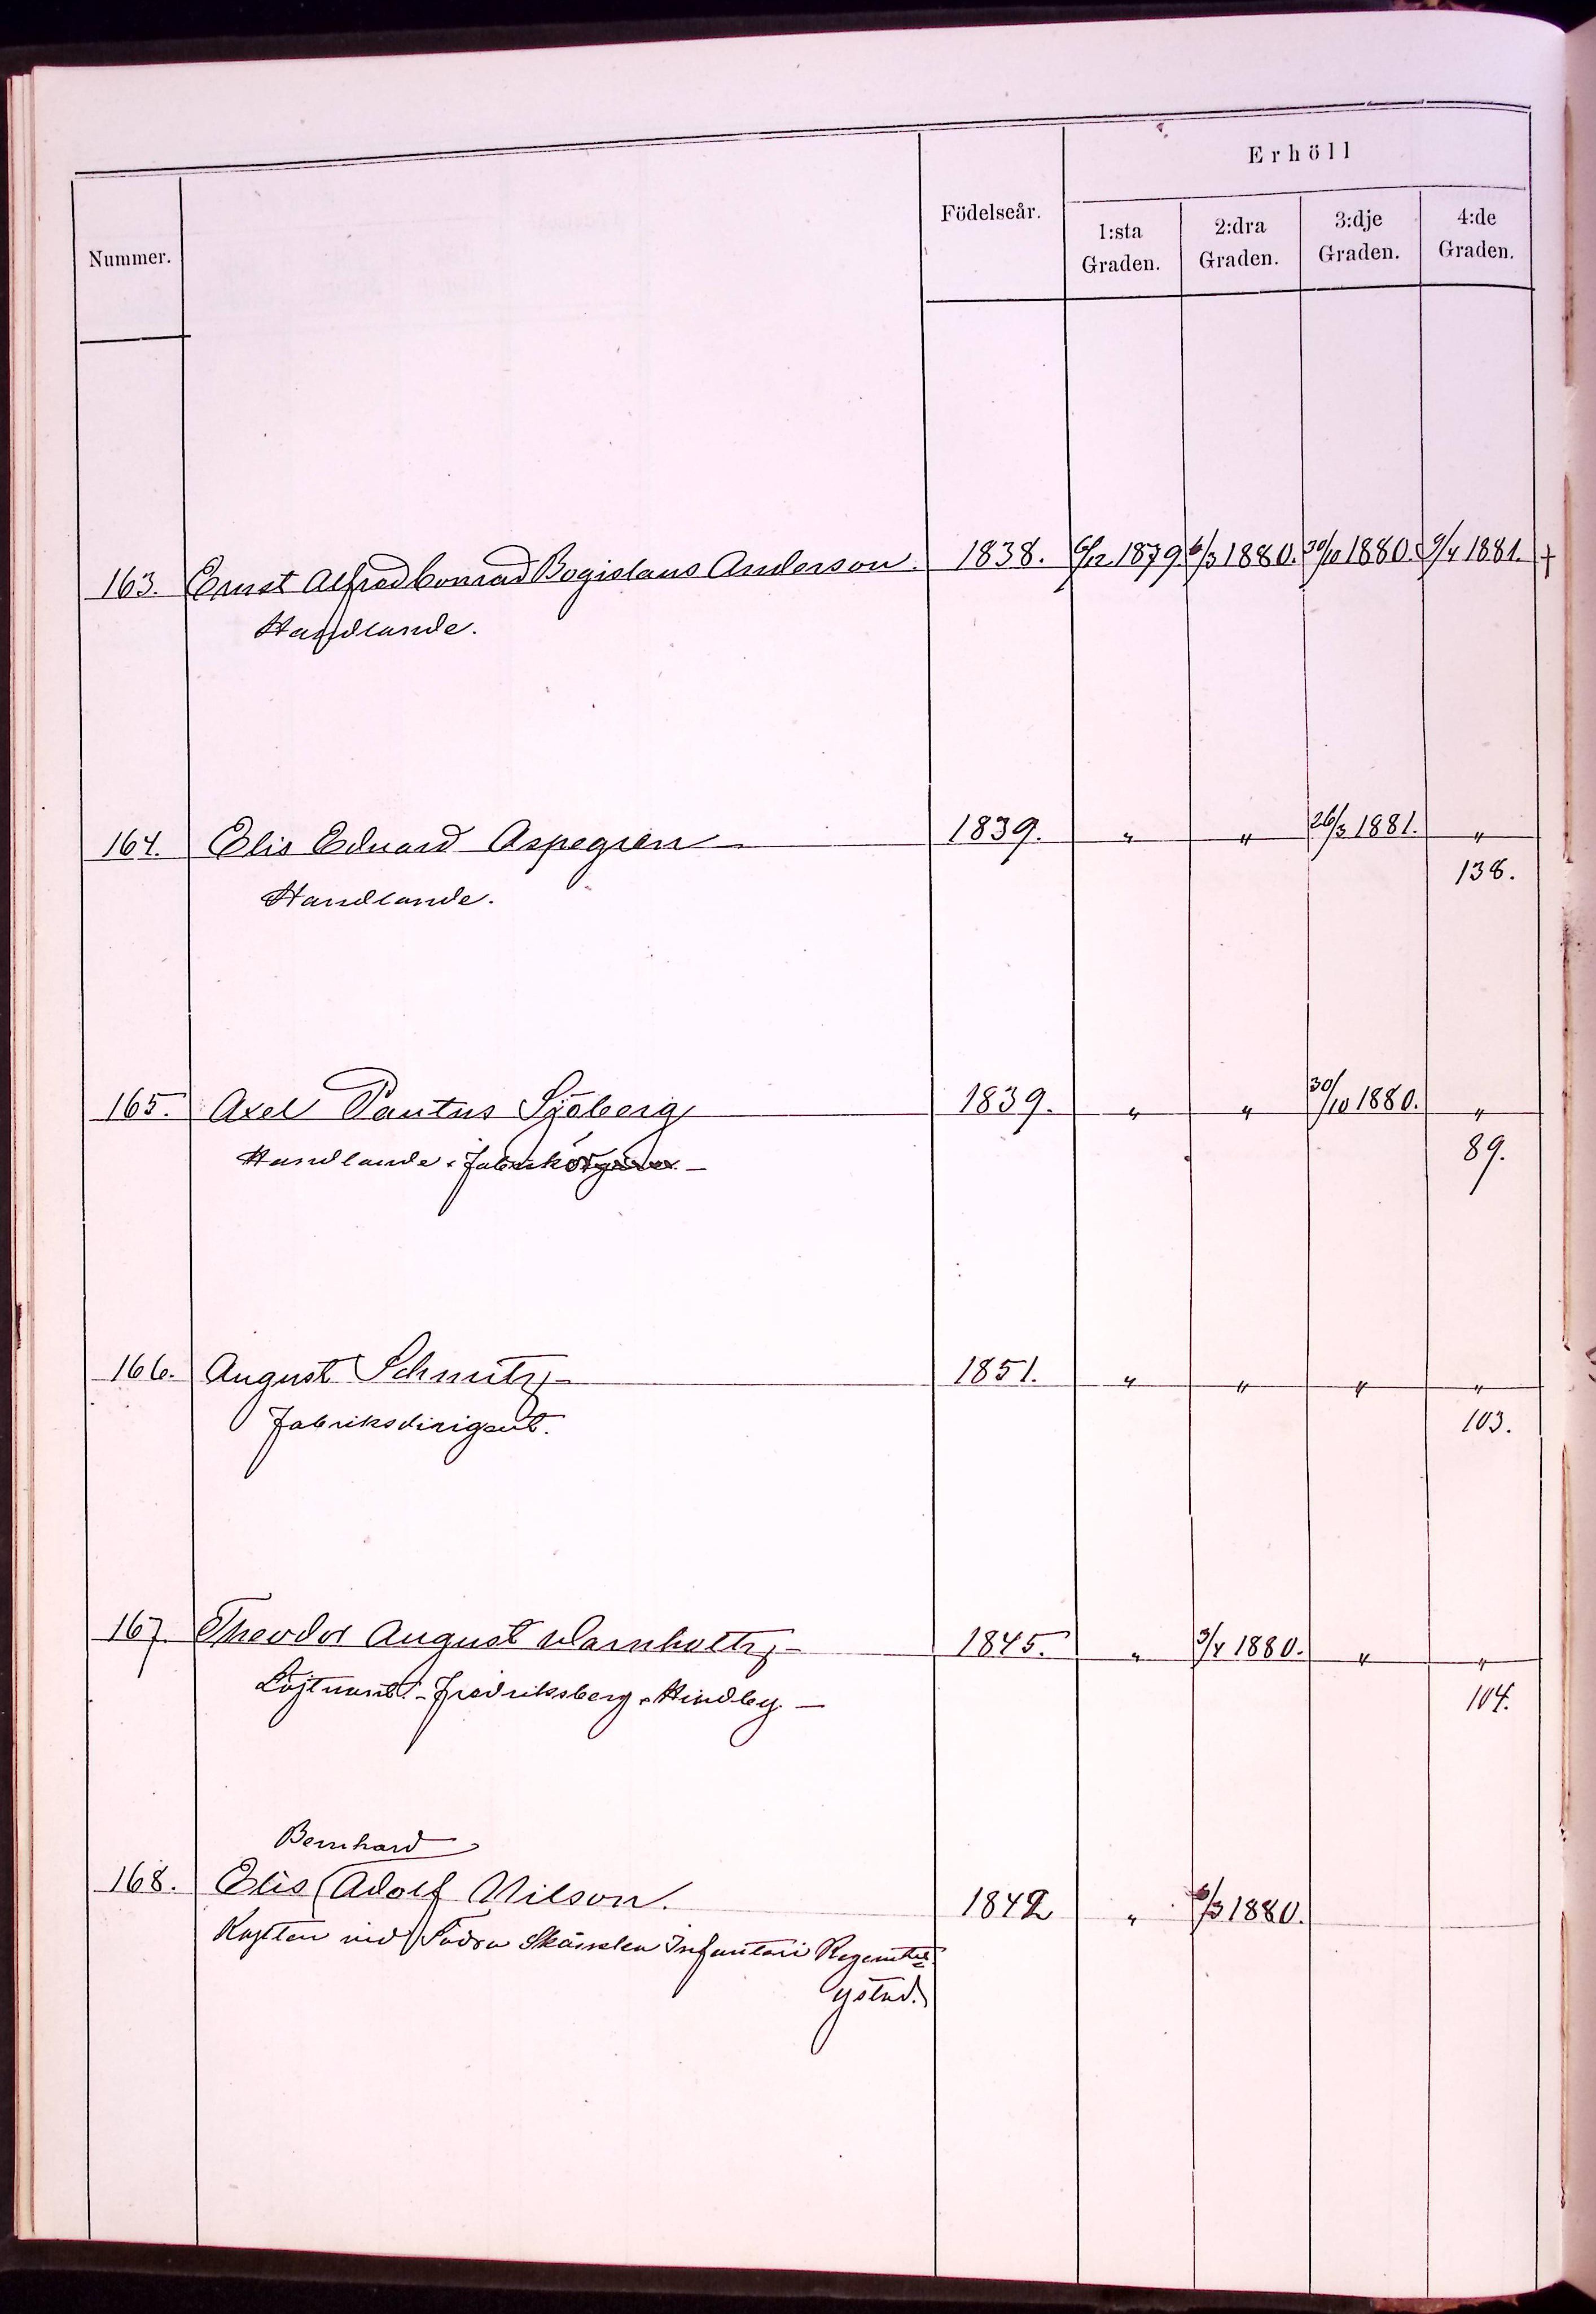 Nummer.
Födelseår.
Erhöll
1:sta Graden.
2:dra Graden.
3:dje Graden.
4:de Graden.
163. Ernst Alfred Conrad Bogislaus Anderson. 1838. 6/12 1879. 6/3 1880. 30/10 1880. 9/4 1881. †
Handlande.
164. Elis Eduard Aspegren 1839. " " 26/3 1881. "
138.
Handlande.
165. Axel Pontus Sjöberg 1839. " " 30/10 1880. "
89.
Handlande o. Fabriksidkare.
166. August Schmitz 1851. " " " "
103.
Fabriksdirigent.
167. Theodor August Warnholtz 1845. " 3/4 1880. " "
104.
Löjtnant. Fredriksberg, Hindby.
Bernhard
168. Elis Adolf Nilson. 1842 " 6/3 1880.
Kapten vid Södra Skånska Infanteri Regemtet
Ystad.